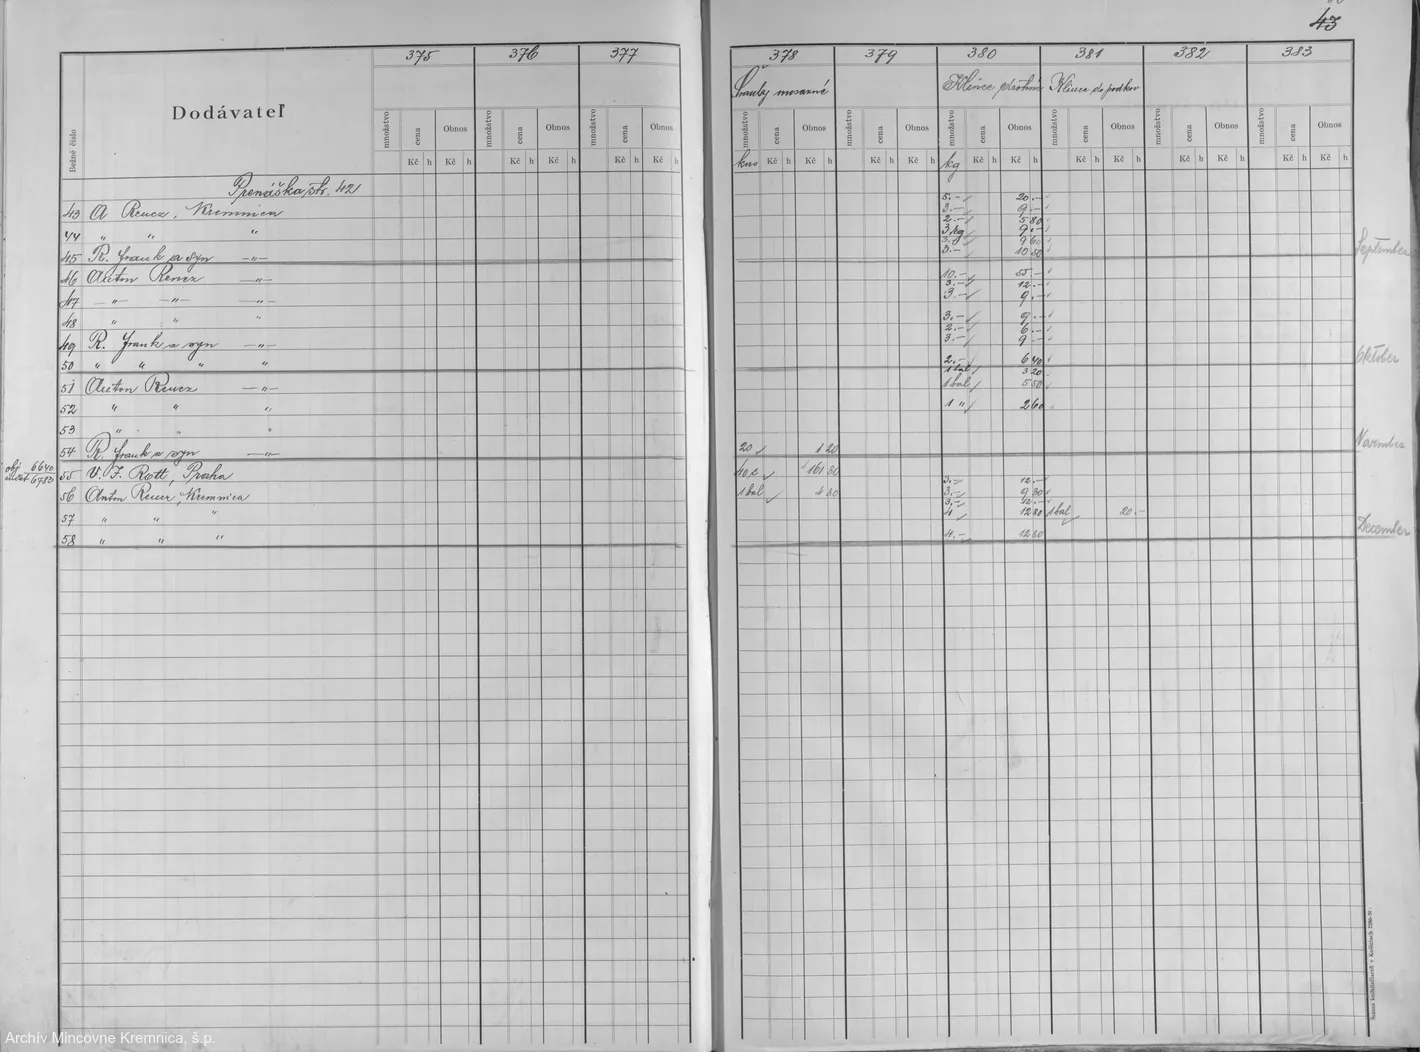 43
375 376 377 378 379 380 381 382 383
Šrauby mosazné Klince drôtené Klince do podkov
Bežné číslo Dodávateľ
množstvo cena Obnos množstvo cena Obnos množstvo cena Obnos množstvo cena Obnos množstvo cena Obnos množstvo cena Obnos množstvo cena Obnos množstvo cena Obnos množstvo cena Obnos
Kč h Kč h Kč h Kč h Kč h Kč h kus Kč h Kč h Kč h Kč h kg Kč h Kč h Kč h Kč h Kč h Kč h Kč h Kč h
Prenáška str. 42
5.- 20.-
3.- 9.-
43 A Rencz, Kremnica 2.- 5 80
3 kg 9.-
44 " " " 3. 9 60
September
45 R. Frank a syn -"- 3.- 10 50
46 Anton Rencz -"- 10.- 55.-
3.- 12.-
47 -"- -"- -"- 3 9.-
48 " " " 3.- 9.-
2.- 6.-
49 R. Frank a syn -"- 3.- 9
Október
50 " " " " 2.- 6 40
1 bal 3 20
51 Anton Rencz -"- 1 bal 5 50
52 " " " 1 " 2 60
53 " " "
November
54 R. Frank a syn -"- 20 1 20
obj 6640
účet 6783
55 V. J. Rott, Praha 40 c 161 80 3.- 12.-
56 Anton Rencz, Kremnica 1 bal 4 80 3.- 9 30
3.- 12.-
57 " " " 4 12 80 1 bal 20.-
December
58 " " " 4.- 12 80
Archív Mincovne Kremnica, š.p.